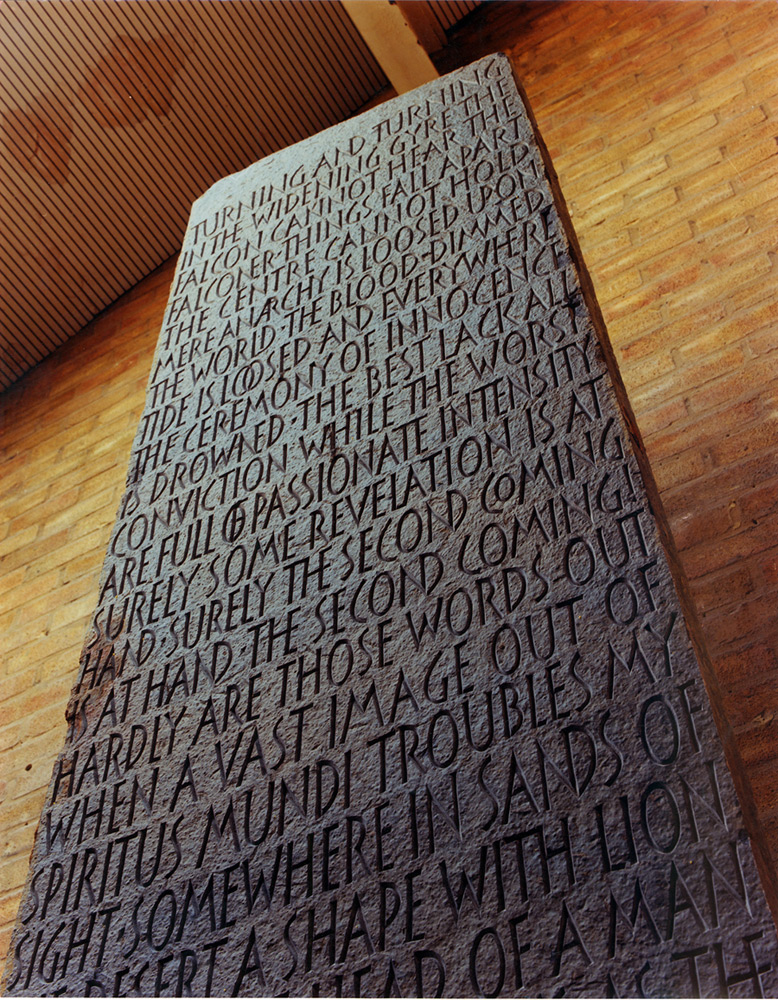 TURNING AND TURNING
IN THE WIDENING GYRE THE
FALCON CANNOT HEAR THE
FALCONER·THINGS FALL APART
THE CENTRE CANNOT HOLD
MERE ANARCHY IS LOOSED UPON
THE WORLD·THE BLOOD-DIMMED
TIDE IS LOOSED AND EVERYWHERE
THE CEREMONY OF INNOCENCE
IS DROWNED·THE BEST LACK ALL
CONVICTION·WHILE THE WORST
ARE FULL OF PASSIONATE INTENSITY
SURELY SOME REVELATION IS AT
HAND·SURELY THE SECOND COMING
IS AT HAND·THE SECOND COMING!
HARDLY ARE THOSE WORDS OUT
WHEN A VAST IMAGE OUT OF
SPIRITUS MUNDI TROUBLES MY
SIGHT·SOMEWHERE IN SANDS OF
DESERT A SHAPE WITH LION
HEAD OF A MAN
AS THE